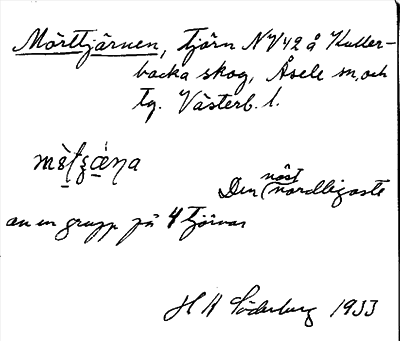 Mörttjärnen, tjärn NV42 å Kuller-
backa skog, Åsele sn, och
tg. Västerb. l.
Den näst nordligaste
av en grupp på 4 tjärnar
H A Söderberg 1933